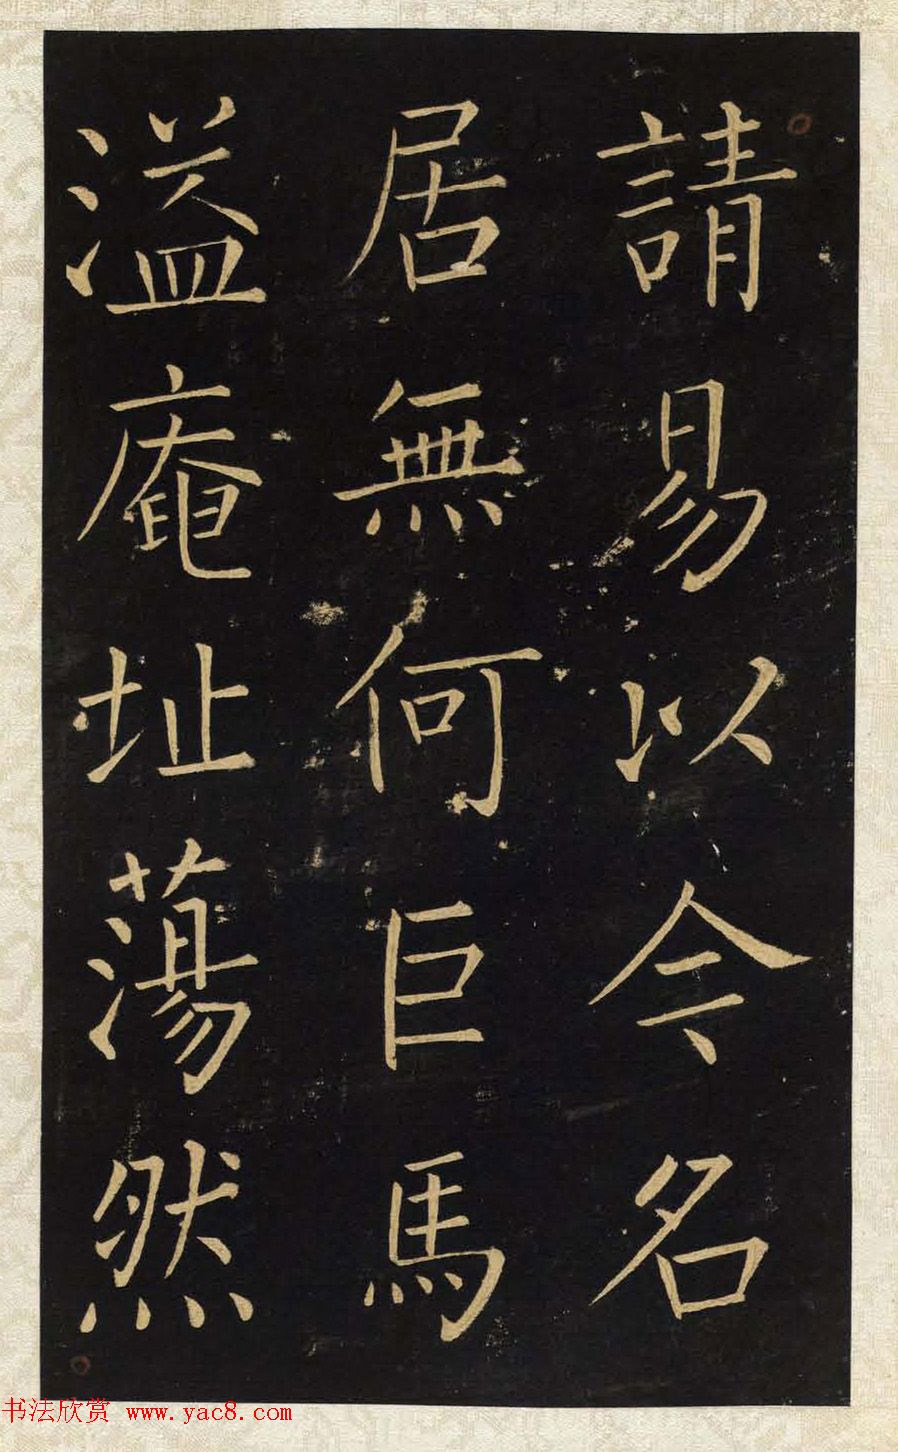 請易以令名
居無何巨馬
溢庵址蕩然
书法欣赏 www.yac8.com